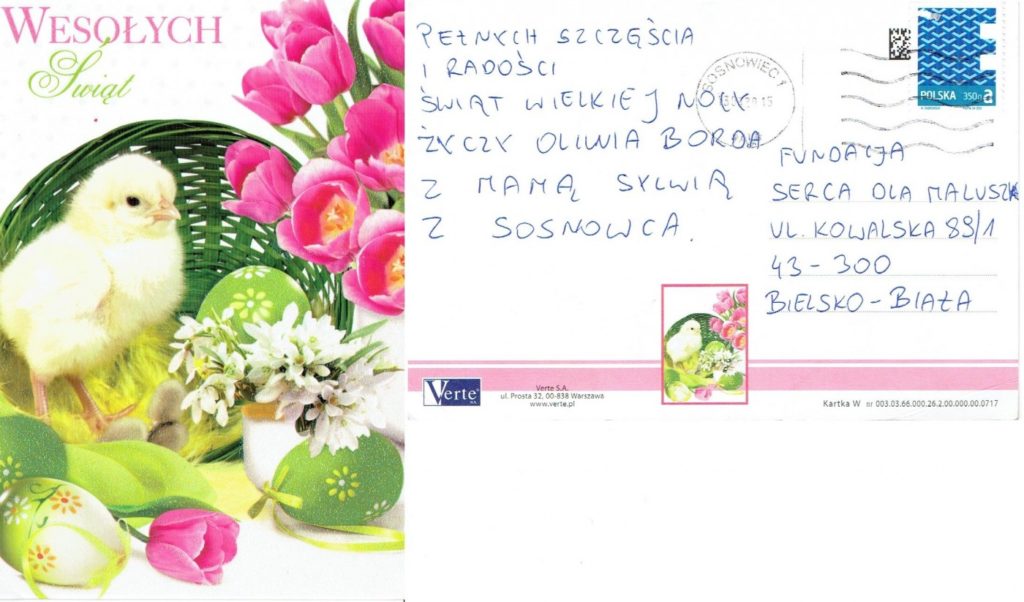 WESOŁYCH
Świąt
PEŁNYCH SZCZĘŚCIA
I RADOŚCI
ŚWIĄT WIELKIEJ NOCY
ŻYCZY OLIWIA BORDA
Z MAMĄ SYLWIĄ
Z SOSNOWCA.
SOSNOWIEC 1
POLSKA 350g a
FUNDACJA
SERCA DLA MALUSZKA
UL. KOWALSKA 89/1
43-300
BIELSKO-BIAŁA
Verte S.A.
Verte S.A.
ul. Prosta 32, 00-838 Warszawa
www.verte.pl
Kartka W nr 003.03.66.000.26.2.00.000.00.0717